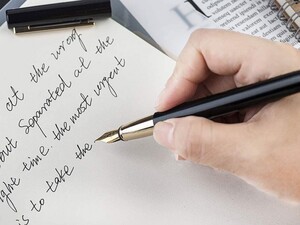 at the wrong
out Separated at the
ight time. the most urgent
is to take the